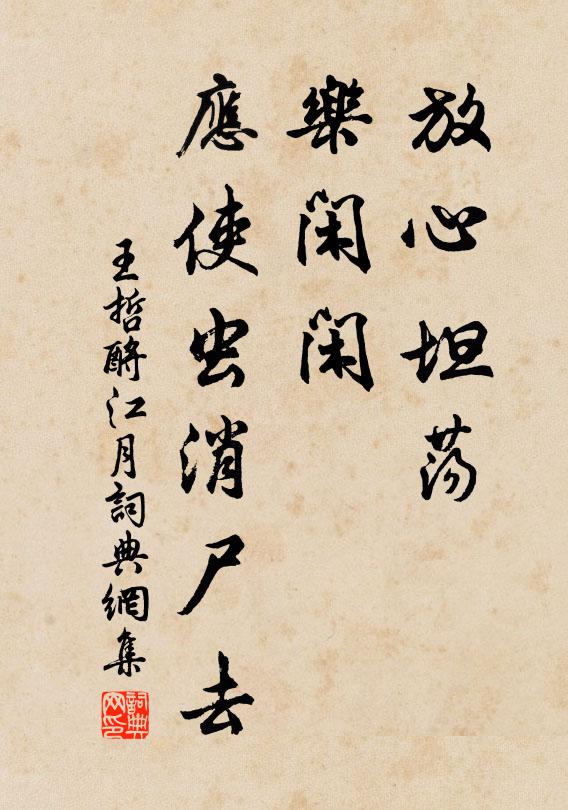 放心坦蕩
樂閑閑
應使虫消尸去
王哲酹江月詞典網集
詞典网印